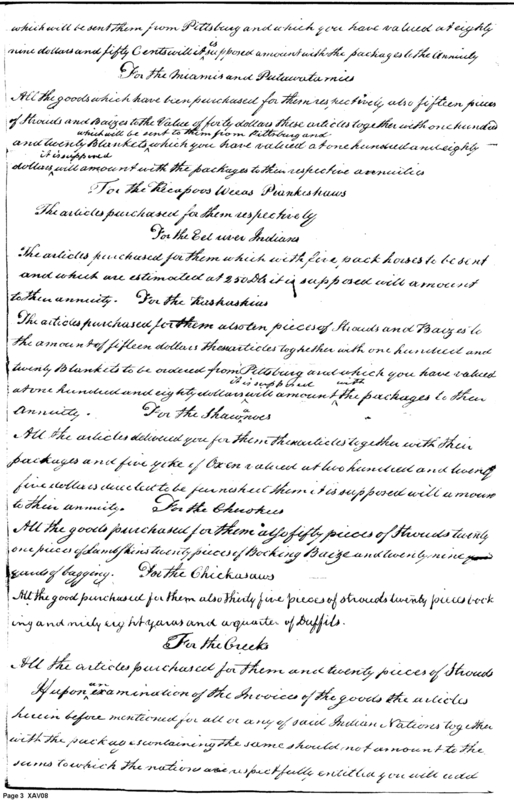 which will be sent them from Pittsburg and which you have valued at eighty
nine dollars and fifty Cents will it is supposed amount with the packages to the Annuity
For the Miamis and Putawatamies
All the goods which have been purchased for them respectively also fifteen pieces
of Strouds and Baizes to the Value of forty dollars these articles together with one hundred
which will be sent to them from Pittsburg and
and twenty Blankets which you have valued at one hundred and eighty
it is supposed
dollars will amount with the packages to their respective annuities
For the Kecapoos Weeas Piankeshaws
The articles purchased for them respectively
For the Eel river Indians
The articles purchased for them which with five pack horses to be sent
and which are estimated at 250 Dls it is supposed will amount
to their annuity. For the Kaskaskias
The articles purchased for them also ten pieces of Strouds and Baizes to
the amount of fifteen dollars these articles together with one hundred and
twenty Blankets to be ordered from Pittsburg and which you have valued
it is supposed with
at one hundred and eighty dollars will amount the packages to their
Annuity. For the Shawanoes
All the articles delivered you for them these articles together with their
packages and five yoke of Oxen valued at two hundred and twenty
five dollars directed to be furneshed them it is supposed will amount
to their annuity. For the Cherokees
All the goods purchased for them also fifty pieces of Strouds twenty
one pieces of Lambskins twenty pieces of Bocking Baize and twenty nine
yards of bagging. For the Chickasaws
All the good purchased for them also thirty five pieces of strouds twenty pieces bock
ing and ninety eight yards and a quarter of Duffils.
For the Creeks
All the articles purchased for them and twenty pieces of Strouds
If upon an examination of the Invoices of the goods the articles
herein before mentioned for all or any of said Indian Nations together
with the packages containing the same should not amount to the
sums to which the nations are respectfully entitled you will add
Page 3 XAV08